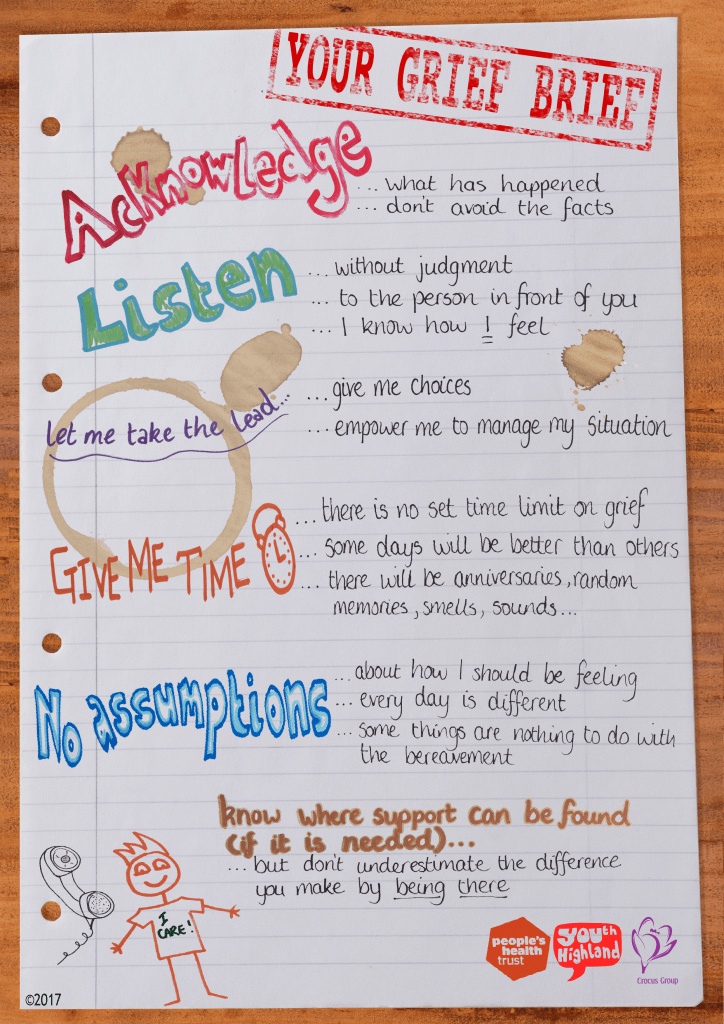 YOUR GRIEF BRIEF
Acknowledge
... what has happened
... don't avoid the facts
Listen
... without judgment
... to the person in front of you
... I know how I feel
let me take the lead...
... give me choices
... empower me to manage my situation
GIVE ME TIME
... there is no set time limit on grief
... some days will be better than others
... there will be anniversaries, random
memories, smells, sounds...
No assumptions
... about how I should be feeling
... every day is different
... some things are nothing to do with
the bereavement
know where support can be found
(if it is needed)...
... but don't underestimate the difference
you make by being there
I
CARE!
people's
health
trust
youth
Highland
Crocus Group
©2017